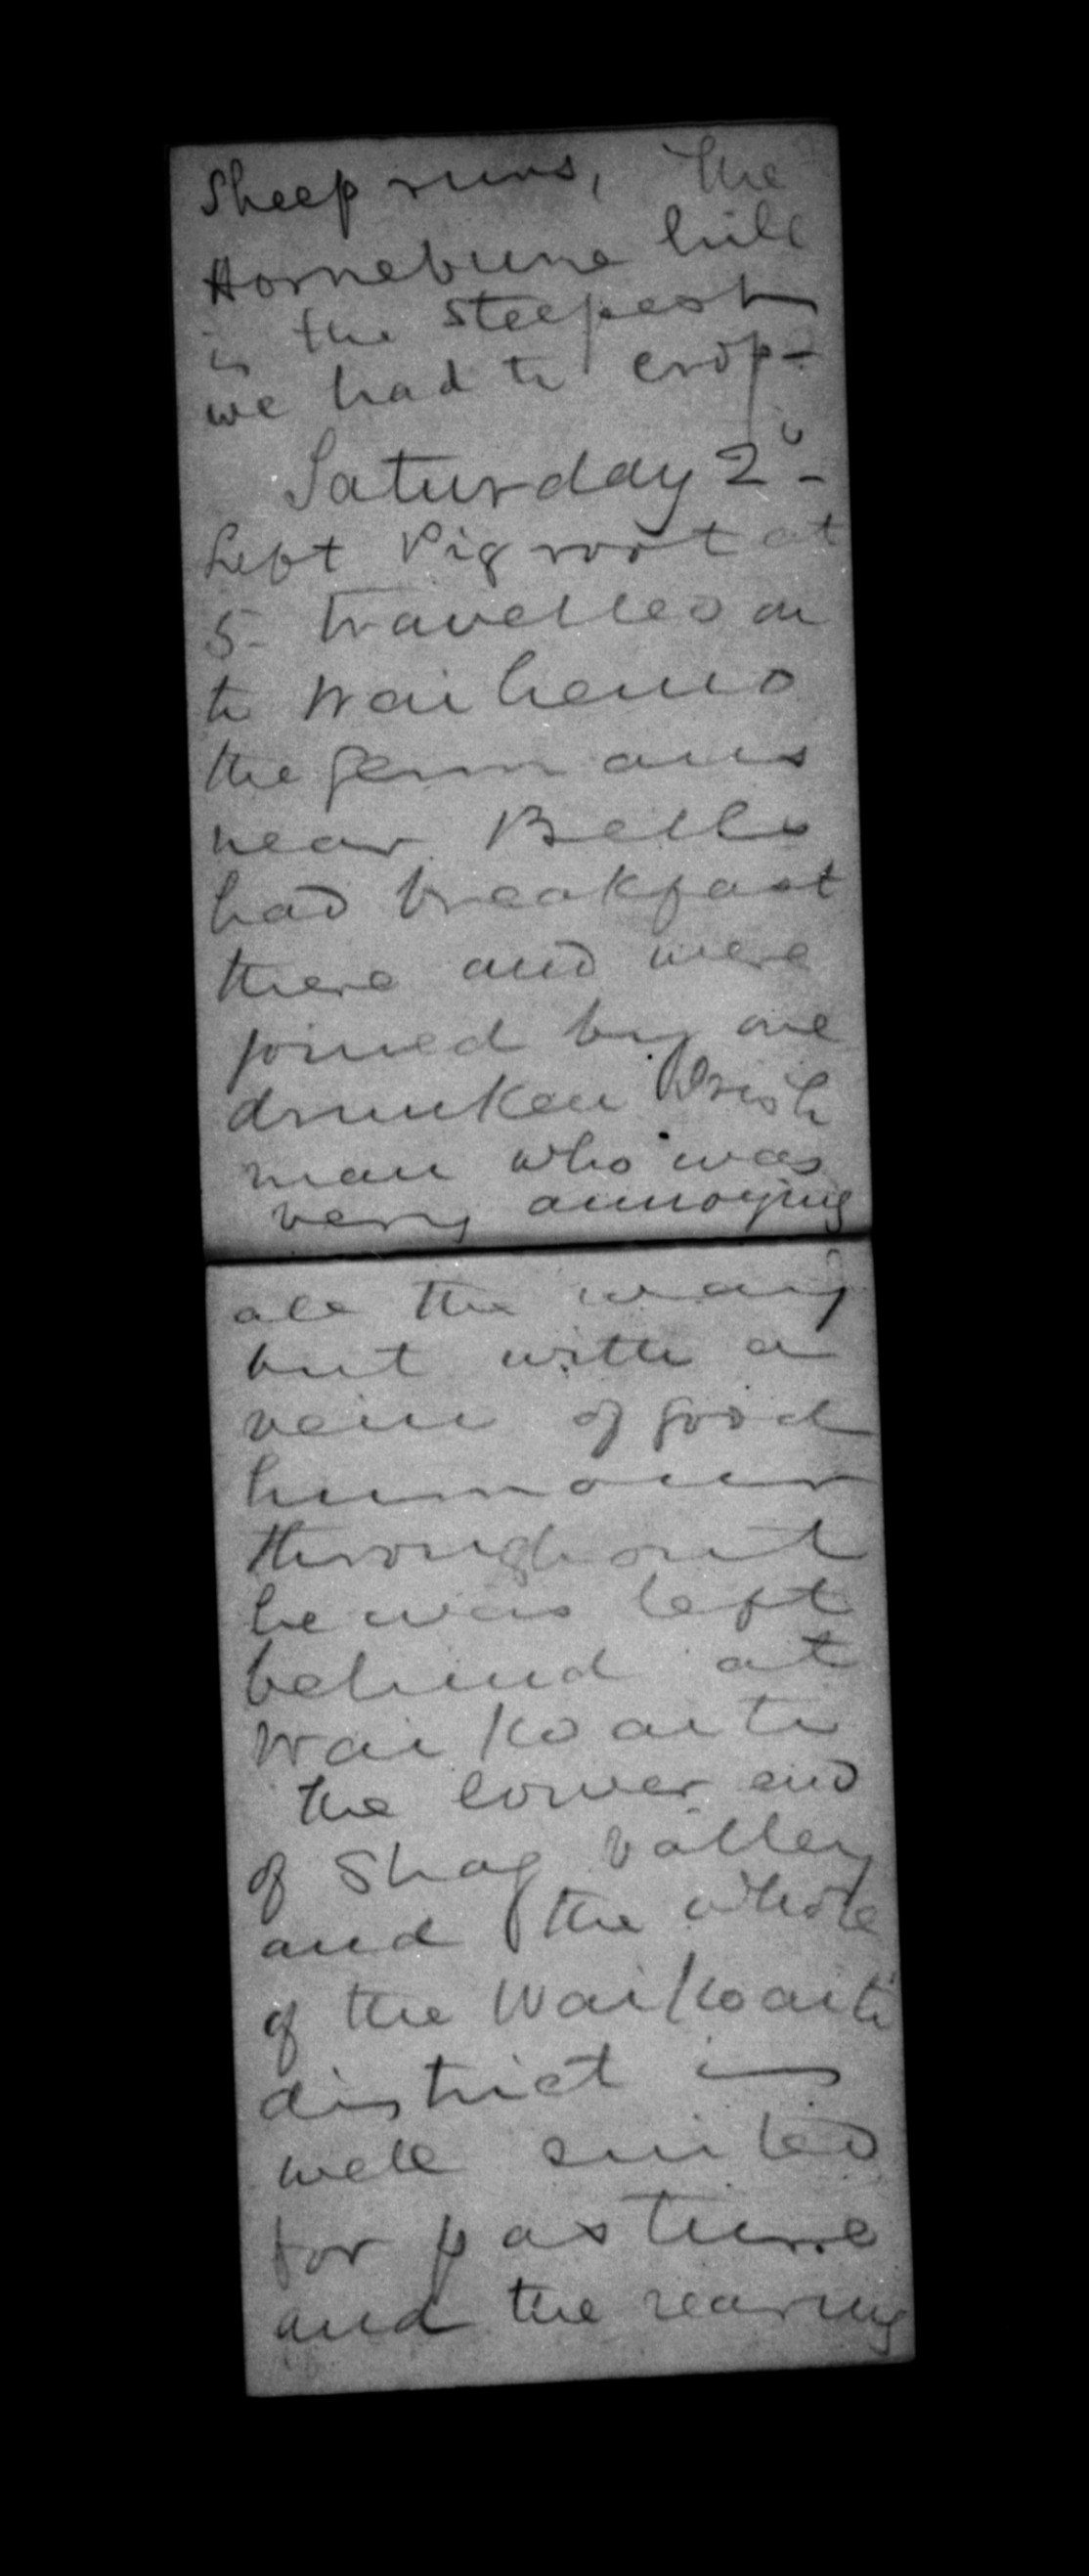 Sheep runs, The
Hornebune hill
is the steepest
we had to crop-
Saturday 2 -
Left Pigroot at
5- travelled on
to Waihemo
the germans
near Bells
had breakfast
there and were
joined by one
drunken Irish
man who was
very annoying
all the way
but with a
vein of good
humour
throughout
he was left
behind at
Waikoaiti
the lower end
of Shag valley
and the whole
of the Waikoaiti
district is
well suited
for pasture
and the rearing